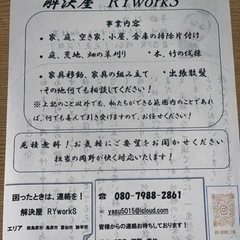 解決屋 RYworkS
事業内容
・家、庭、空き家、小屋、倉庫の掃除片付け
・庭、荒地、畑の草刈り ・木、竹の伐採
・家具移動、家具の組み立て ・出張散髪
その他何でも相談ください！
・上記のこと以外でも、私たちができる範囲内のことであれば、
何でも喜んで引き受けますので、お任せください！
見積無料！お気軽にご要望をお聞かせください
担当の岡野が快く対応いたします！
困ったときは、連絡を！
解決屋 RYworkS
エリア
☎ 080-7988-2861
yasu5015@icloud.com
皆様からの連絡お待ちしております。